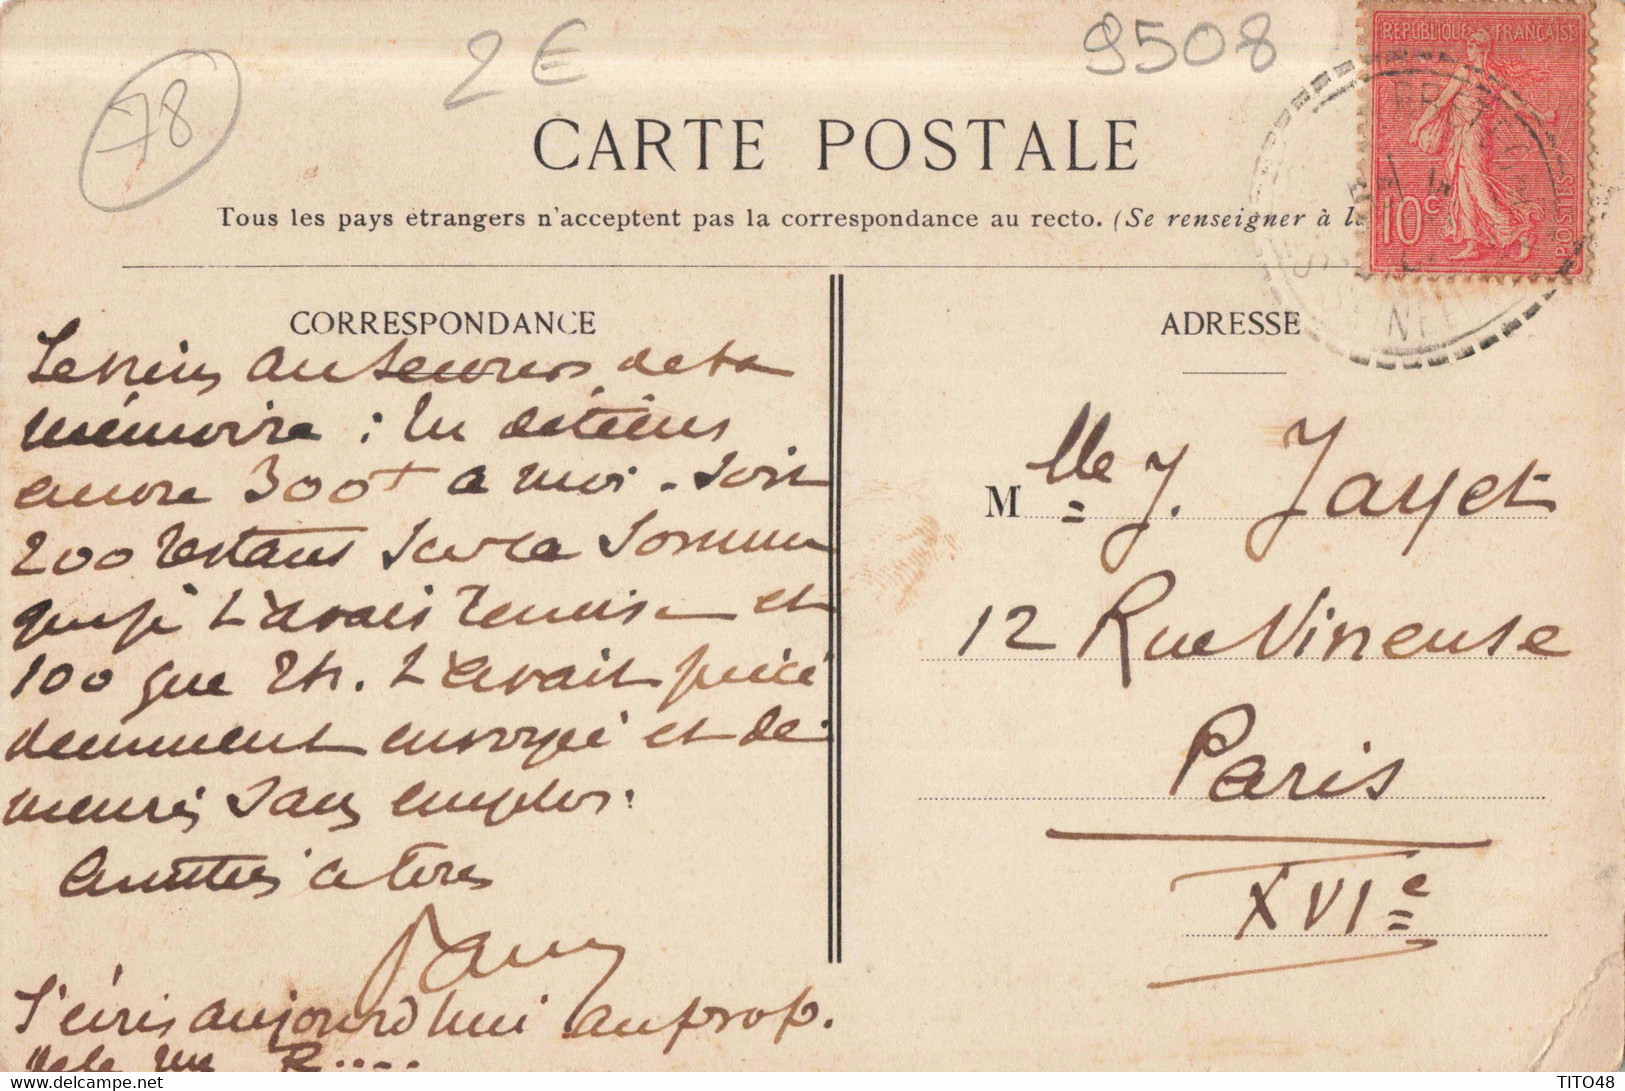 78
2€
9508
RÉPUBLIQUE FRANÇAISE
10c
POSTES
CARTE POSTALE
Tous les pays etrangers n'acceptent pas la correspondance au recto. (Se renseigner à la
CORRESPONDANCE
ADRESSE
Je viens au secours de ta
mémoire : tu détiens
encore 300f à moi. Soit
200 restans sur la somme
que je t'avais remise et
100 que Th. t'avait précé
demment envoyé et de
meurés sans emploi.
Amitiés à tous
J'écris aujourd'hui au prop.
de la rue R....
Mlle J. Jayet
12 Rue Vineuse
Paris
XVIe
delcampe.net
TITO48